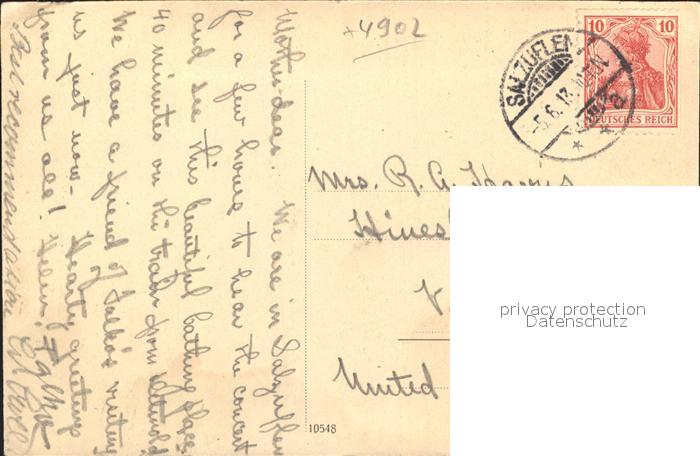 4902
10 10
DEUTSCHES REICH
SALZUFLEN
-5.6.13.
a
Mother dear. We are in Salzuflen
for a few hours to hear the concert
and see this beautiful bathing place
40 minutes on the train from Detmold.
We have a friend of Falko's visiting
us just now. Hearty greetings
from us all! Helen.
Mrs. R. G.
Hines
V
United
10548
privacy protection
Datenschutz